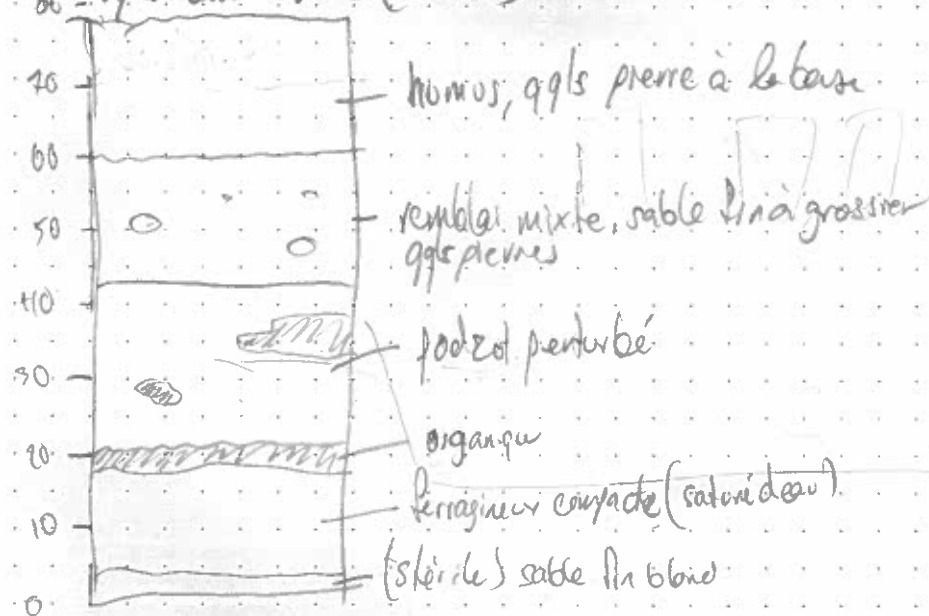 80
70
humus, qqls pierre à la base
60
remblai mixte, sable fin à grossier
50
qqls pierres
40
podzol perturbé
30
organique
20
ferragineux compacte (saturé d'eau)
10
(stérile) sable fin blond
0